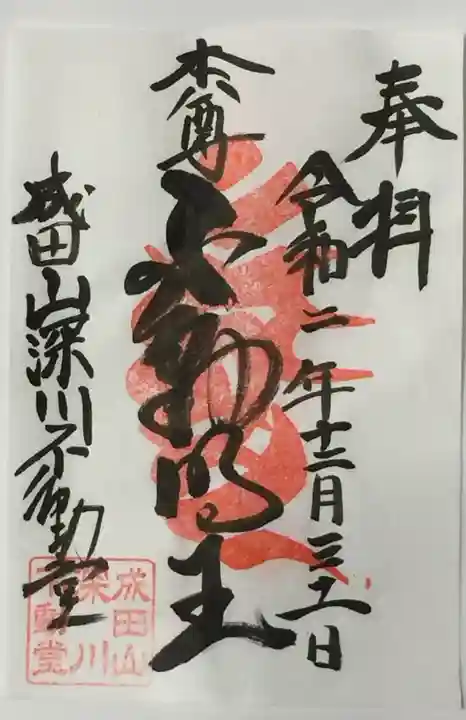 奉拝
令和二年十二月三十一日
本尊
不動明王
成田山深川不動堂
成田山
深川
不動堂